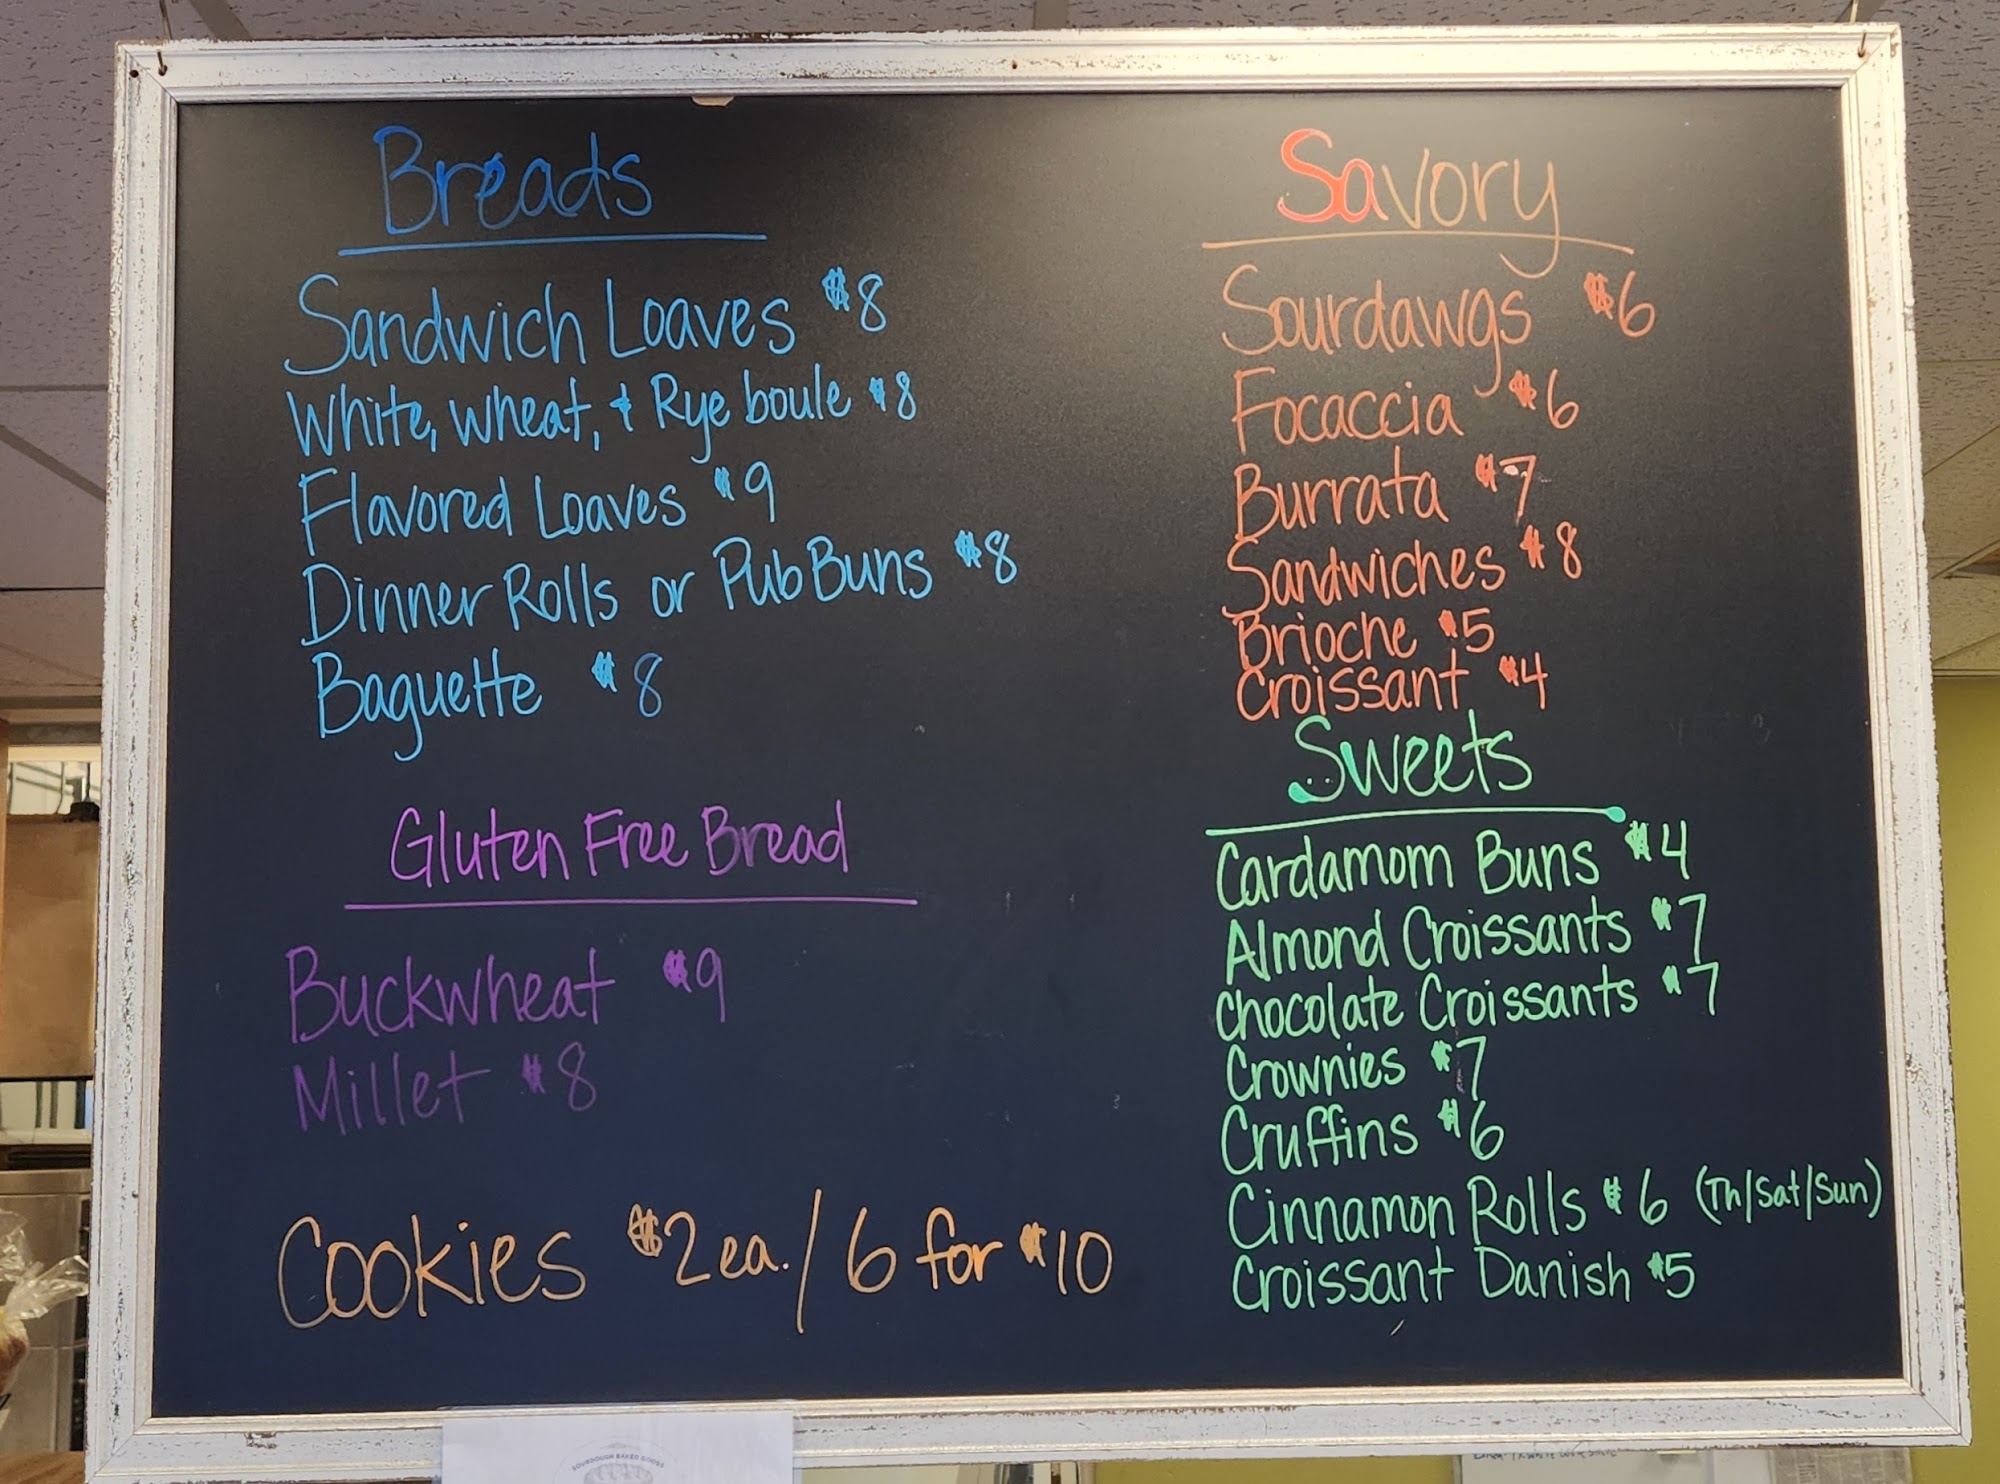 Breads
Sandwich Loaves $8
White, wheat, + Rye boule $8
Flavored Loaves $9
Dinner Rolls or Pub Buns $8
Baguette $8
Gluten Free Bread
Buckwheat $9
Millet $8
Cookies $2 ea. / 6 for $10
Savory
Sourdawgs $6
Focaccia $6
Burrata $7
Sandwiches $8
Brioche $5
Croissant $4
Sweets
Cardamom Buns $4
Almond Croissants $7
Chocolate Croissants $7
Crownies $7
Cruffins $6
Cinnamon Rolls $6 (Th/Sat/Sun)
Croissant Danish $5
SOURDOUGH BAKED GOODS